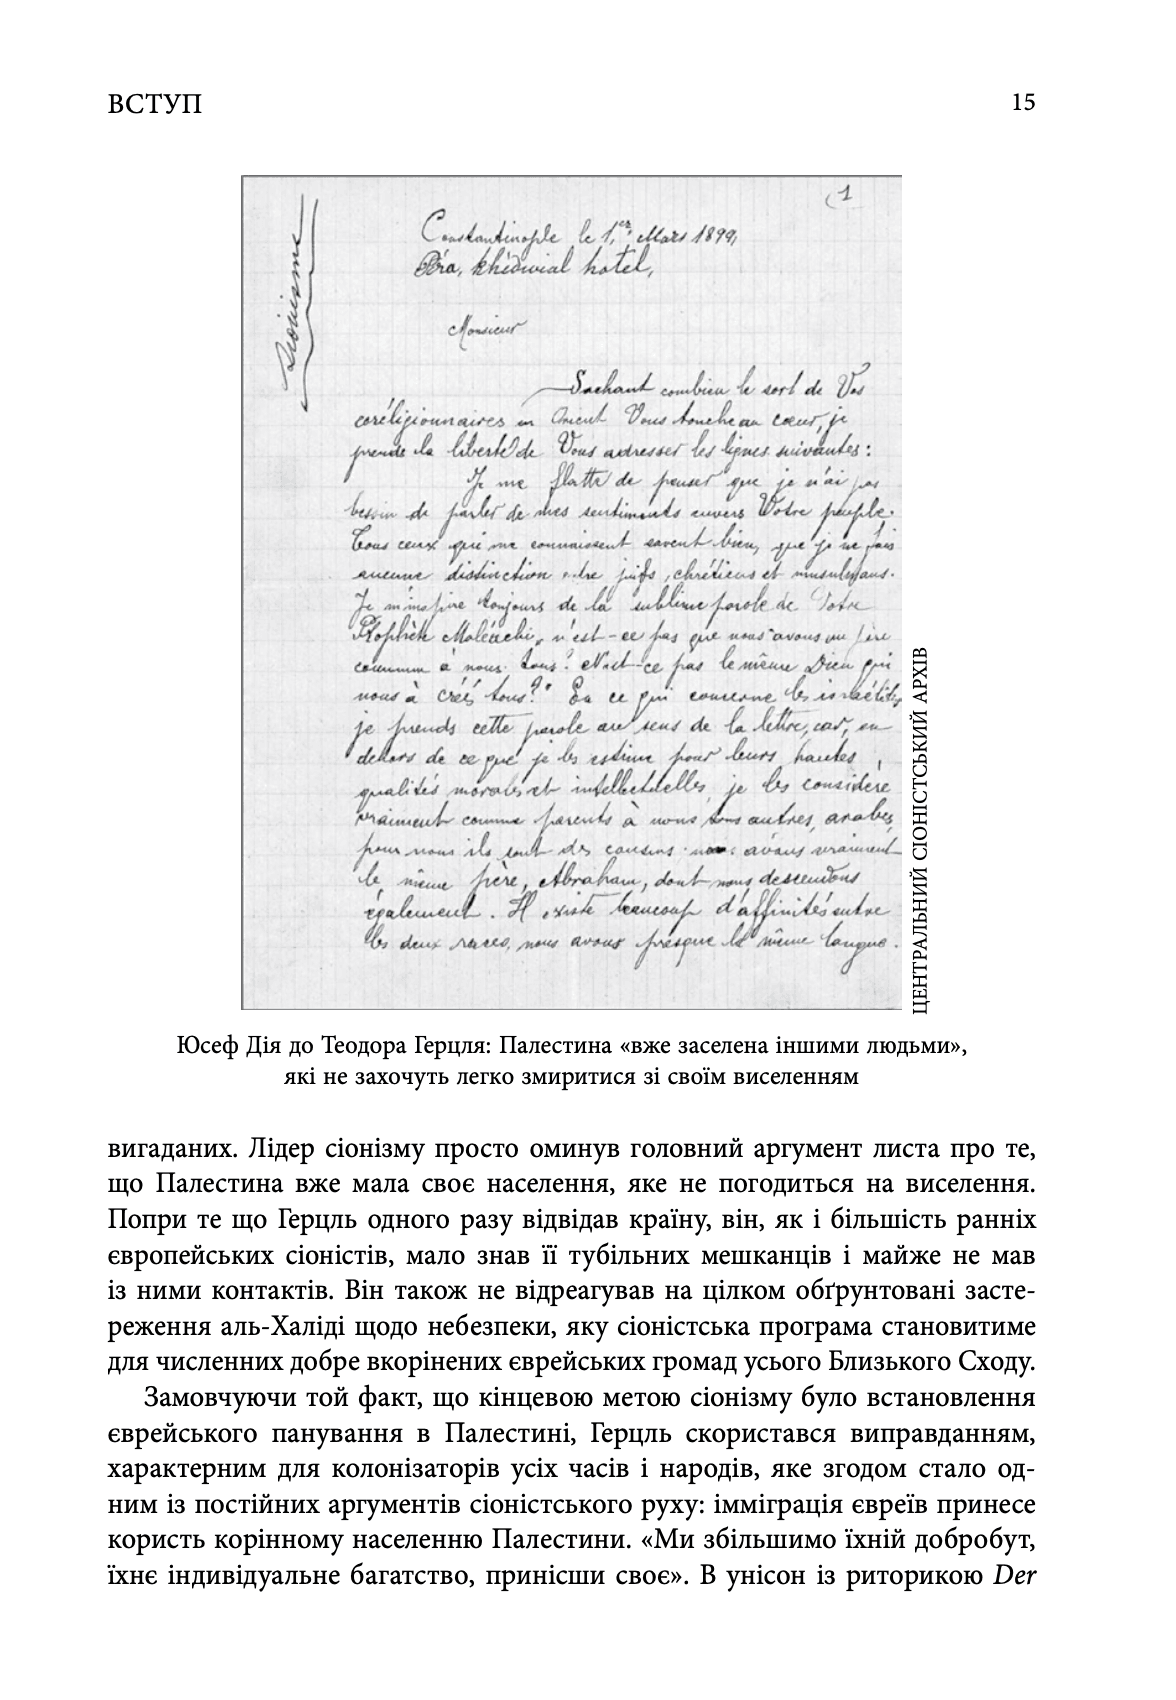 ВСТУП 15
(1
Sionisme
Constantinople le 1er Mars 1899,
Péra, khédivial hotel,
Monsieur
Sachant combien le sort de Vos
coréligionnaires en Orient Vous touche au cœur, je
prends la liberté de Vous adresser les lignes suivantes:
Je me flatte de penser que je n'ai pas
besoin de parler de mes sentiments envers Votre peuple.
Tous ceux qui me connaissent savent bien, que je ne fais
aucune distinction entre juifs, chrétiens et musulmans.
Je m'inspire toujours de la sublime parole de Votre
Prophète Malachi, n'est-ce pas que nous avons un père
commun à nous tous? N'est-ce pas le même Dieu qui
nous à créé tous?" En ce qui concerne les israélites
je prends cette parole au sens de la lettre, car, en
dehors de ce que je les estime pour leurs hautes
qualités morales et intellectuelles, je les considère
vraiment comme parents à nous autres, arabes,
pour nous ils sont des cousins nous avons vraiment
le même père, Abraham, dont nous descendons
également. Il existe beaucoup d'affinités entre
les deux races, nous avons presque la même langue.
ЦЕНТРАЛЬНИЙ СІОНІСТСЬКИЙ АРХІВ
Юсеф Дія до Теодора Герцля: Палестина «вже заселена іншими людьми»,
які не захочуть легко змиритися зі своїм виселенням
вигаданих. Лідер сіонізму просто оминув головний аргумент листа про те,
що Палестина вже мала своє населення, яке не погодиться на виселення.
Попри те що Герцль одного разу відвідав країну, він, як і більшість ранніх
європейських сіоністів, мало знав її тубільних мешканців і майже не мав
із ними контактів. Він також не відреагував на цілком обґрунтовані засте-
реження аль-Халіді щодо небезпеки, яку сіоністська програма становитиме
для численних добре вкорінених єврейських громад усього Близького Сходу.
Замовчуючи той факт, що кінцевою метою сіонізму було встановлення
єврейського панування в Палестині, Герцль скористався виправданням,
характерним для колонізаторів усіх часів і народів, яке згодом стало од-
ним із постійних аргументів сіоністського руху: імміграція євреїв принесе
користь корінному населенню Палестини. «Ми збільшимо їхній добробут,
їхнє індивідуальне багатство, принісши своє». В унісон із риторикою Der